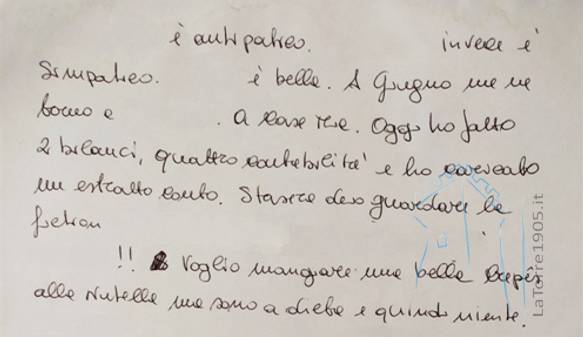 è antipatico. invece è
Simpatico. è bella. A Giugno me ne
torno a . A casa mia. Oggi ho fatto
2 bilanci, quattro contabilità e ho caricato
un estratto conto. Stasera devo guardare la
!! Voglio mangiare una bella crepês
alla Nutella ma sono a dieta e quindi niente.
LaTorre1905.it